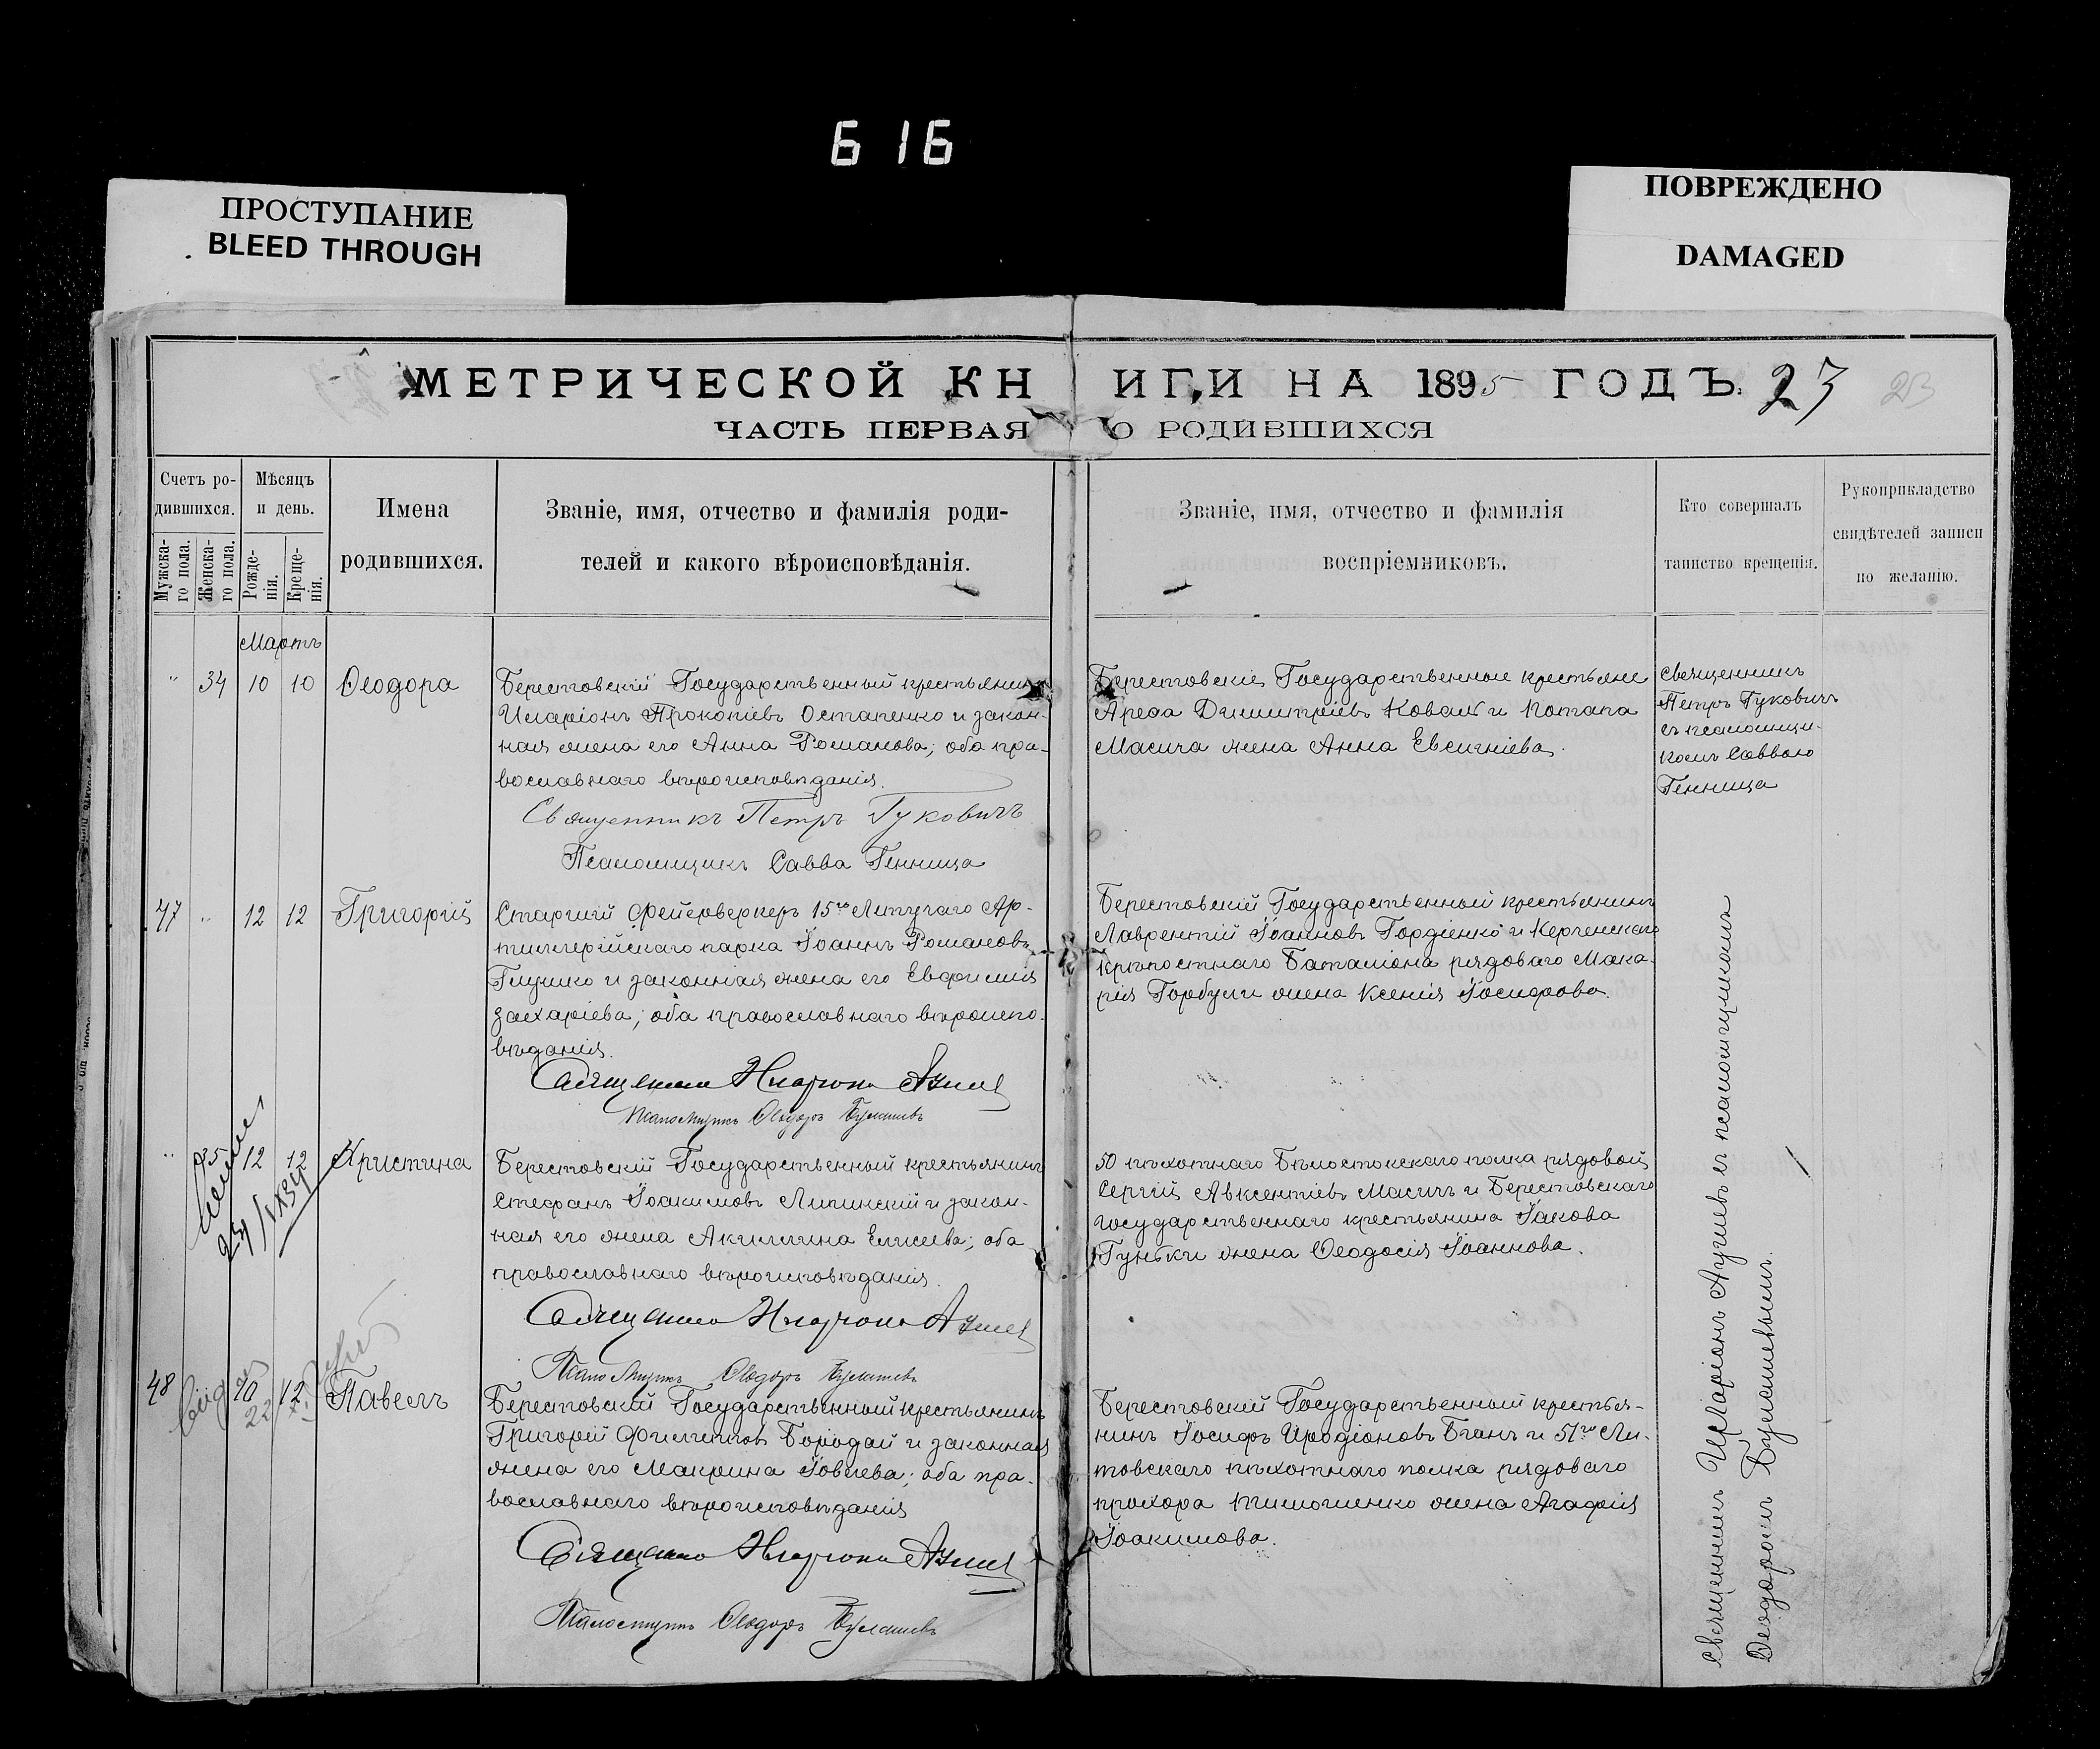 616
ПРОСТУПАНИЕ
BLEED THROUGH
ПОВРЕЖДЕНО
DAMAGED
МЕТРИЧЕСКОЙ КНИГИ НА 1895 ГОДЪ. 23
23
ЧАСТЬ ПЕРВАЯ О РОДИВШИХСЯ
Счетъ ро-
дившихся.
Мужска-
го пола.
Женска-
го пола.
Мѣсяцъ
и день.
Рожде-
нія.
Креще-
нія.
Имена
родившихся.
Званіе, имя, отчество и фамилія роди-
телей и какого вѣроисповѣданія.
Званіе, имя, отчество и фамилія
воспріемниковъ.
Кто совершалъ
таинство крещенія.
Рукоприкладство
свидѣтелей записи
по желанію.
Мартъ
" 34 10 10 Ѳеодора
Берестовскій Государственный крестьянинъ
Иларіонъ Прокопіевъ Остапенко и закон-
ная жена его Анна Романова; оба пра-
вославнаго вѣроисповѣданія.
Священникъ Петръ Гуковичъ
Псаломщикъ Савва Генница
Берестовскіе Государственные крестьяне
Арефа Димитріевъ Коваль и Потапа
Масича жена Анна Евсигніева.
Священникъ
Петръ Гуковичъ
съ псаломщи-
комъ Саввою
Генница
47 " 12 12 Григорій
Старшій фейерверкеръ 15го Летучаго Ар-
тиллерійскаго парка Іоаннъ Романовъ
Глушко и законная жена его Евфимія
Захаріева; оба православнаго вѣроиспо-
вѣданія.
Священникъ Иларіонъ Агіевъ
Псаломщикъ Ѳеодоръ Булашевъ
Берестовскій Государственный крестьянинъ
Лаврентій Іоанновъ Гордіенко и Керченскаго
крѣпостнаго Баталіона рядоваго Мака-
рія Горбули жена Ксенія Іосифова.
" 35 12 12 Христина
Берестовскій Государственный крестьянинъ
Стефанъ Іоакимовъ Липинскій и закон-
ная его жена Акилина Елисеева; оба
православнаго вѣроисповѣданія.
Священникъ Иларіонъ Агіевъ
Псаломщикъ Ѳеодоръ Булашевъ
50 пѣхотнаго Бѣлостокскаго полка рядовой
Сергій Авксентіевъ Масичъ и Берестовскаго
государственнаго крестьянина Іакова
Гуньки жена Ѳеодосія Іоаннова.
48 10 12 Павелъ
Берестовскій Государственный крестьянинъ
Григорій Филипповъ Бородай и законная
жена его Макрина Іовлева; оба пра-
вославнаго вѣроисповѣданія
Священникъ Иларіонъ Агіевъ
Псаломщикъ Ѳеодоръ Булашевъ
Берестовскій Государственный крестья-
нинъ Іосифъ Иродіоновъ Беганъ и 51го Ли-
товскаго пѣхотнаго полка рядоваго
Прохора Тимошенко жена Агафія
Іоакимова.
Священникъ Иларіонъ Агіевъ съ псаломщикомъ
Ѳеодоромъ Булашевымъ.